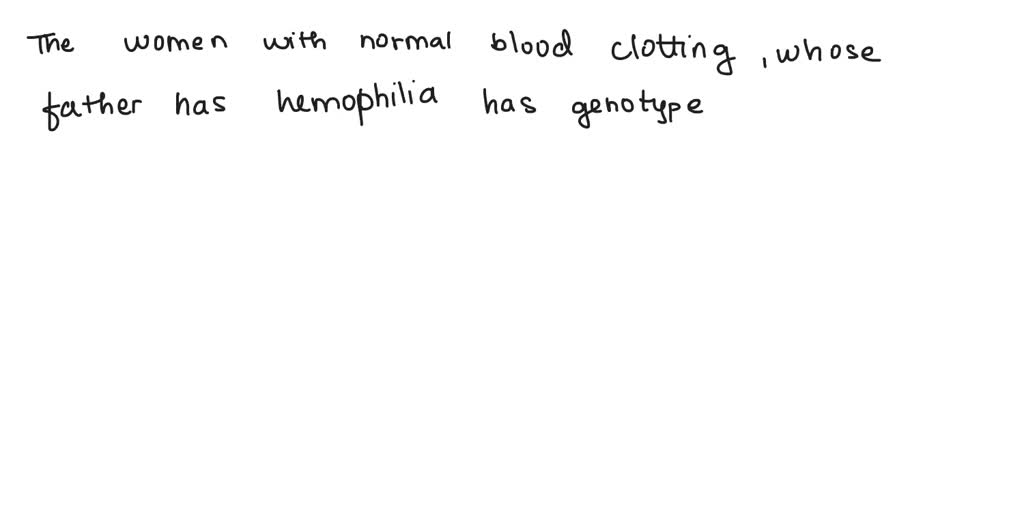 The women with normal blood clotting , whose
father has hemophilia has genotype